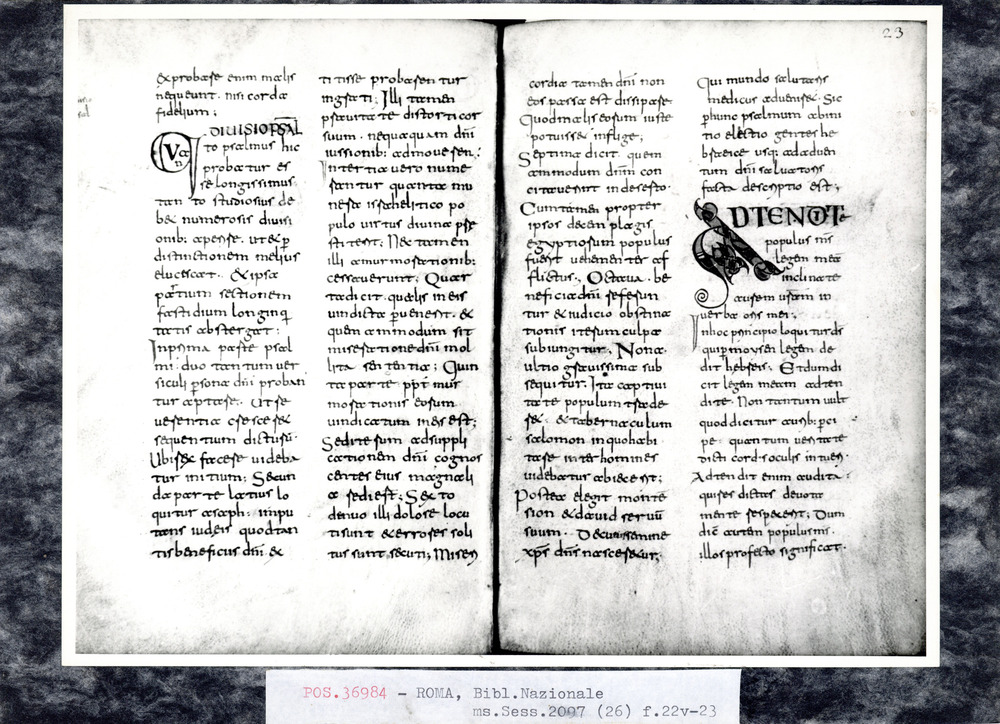 23
exprobrare enim malis
nequeunt. nisi corda
fidelium;
DIUISIO PSAL
Quantopsalmus hic
probatur es
se longissimus.
tanto studiosius de
bet numerosis diuisi
onib: aperire. ut & p
distinctionem melius
elucescat. & ipsa
partium sectionem
fastidium longinq
tatis abstergat:
In prima parte psal
mi. duo tantum uer
siculi persona dni proban
tur aptare. ut se
sequentium dictusu
Ubi & facere uideba
tur initium; Secun
da parte latius lo
quitur asaph. impu
tans iudeis quod tan
tis beneficiis dni &
titisse probarentur
ingrati; Illi tamen
prauitate distorti cor
suum. nequaquam dni
iussionib: admouerent.
In tertia uero nume
rantur quanta mu
nera israhelitico po
pulo uirtus diuina pre
stiterit; Nec tamen
illi a murmorationib:
cessauerunt; Quar
ta dicit. qualis in eis
uindicta puenerit. &
quemammodum sit
miseratione dni mol
lita sententia; Quin
ta parte ppt mur
morationis eorum
uindicatum in eis est;
Sed iterum ad suppli
cationem dni cognos
centes eius magnali
a redierit; Sexto
denuo illi dolore locu
ti sunt & errores soli
tus sunt secuti; Miseri
cordia tamen dni non
eos passa est dissipare
Quod malis eorum iuste
potuisset inflige;
Septima dicit. quem
ammodum dnm con
citauerunt in deserto.
Cum tamen propter
ipsos decem plagis
egyptiorum populus
fuerit uehementer af
flictus. Octaua. be
neficia dni referun
tur & iudicio obstina
tionis iterum culpa
subiungitur. Nona.
ultio grauissima sub
sequitur. Ita captiui
tate populum tradere
& tabernaculum
salomon in quo habi
tare inter homines
uidebatur abiecerit;
Postea elegit monte
sion & dauid seruu
suum. De cuius semine
xps dns nasceretur.
Qui mundo salutaris
medicus aduenir&. Sic
p hunc psalmum ab ini
tio electio gentis he
braeice usq; ad aduen
tum dni saluatoris
facta descriptio est;
ADTENDITE
populus ms
legem mea
inclinate
aurem uram in
uerba oris mei;
In hoc principio loquitur ds
qui p moysen legem de
dit hebreis. Et dum di
cit legem meam adten
dite. Non tantum uult
quod dicitur aurib: pci
pe quantum ueritate
dicti cordis oculis intueri.
Adtendit enim audita.
qui res dictas deuota
mente respexerit; Dum
dic autem populus ms.
illos profecto significat.
POS.36984 - ROMA, Bibl.Nazionale
ms.Sess.2097 (26) f.22v-23